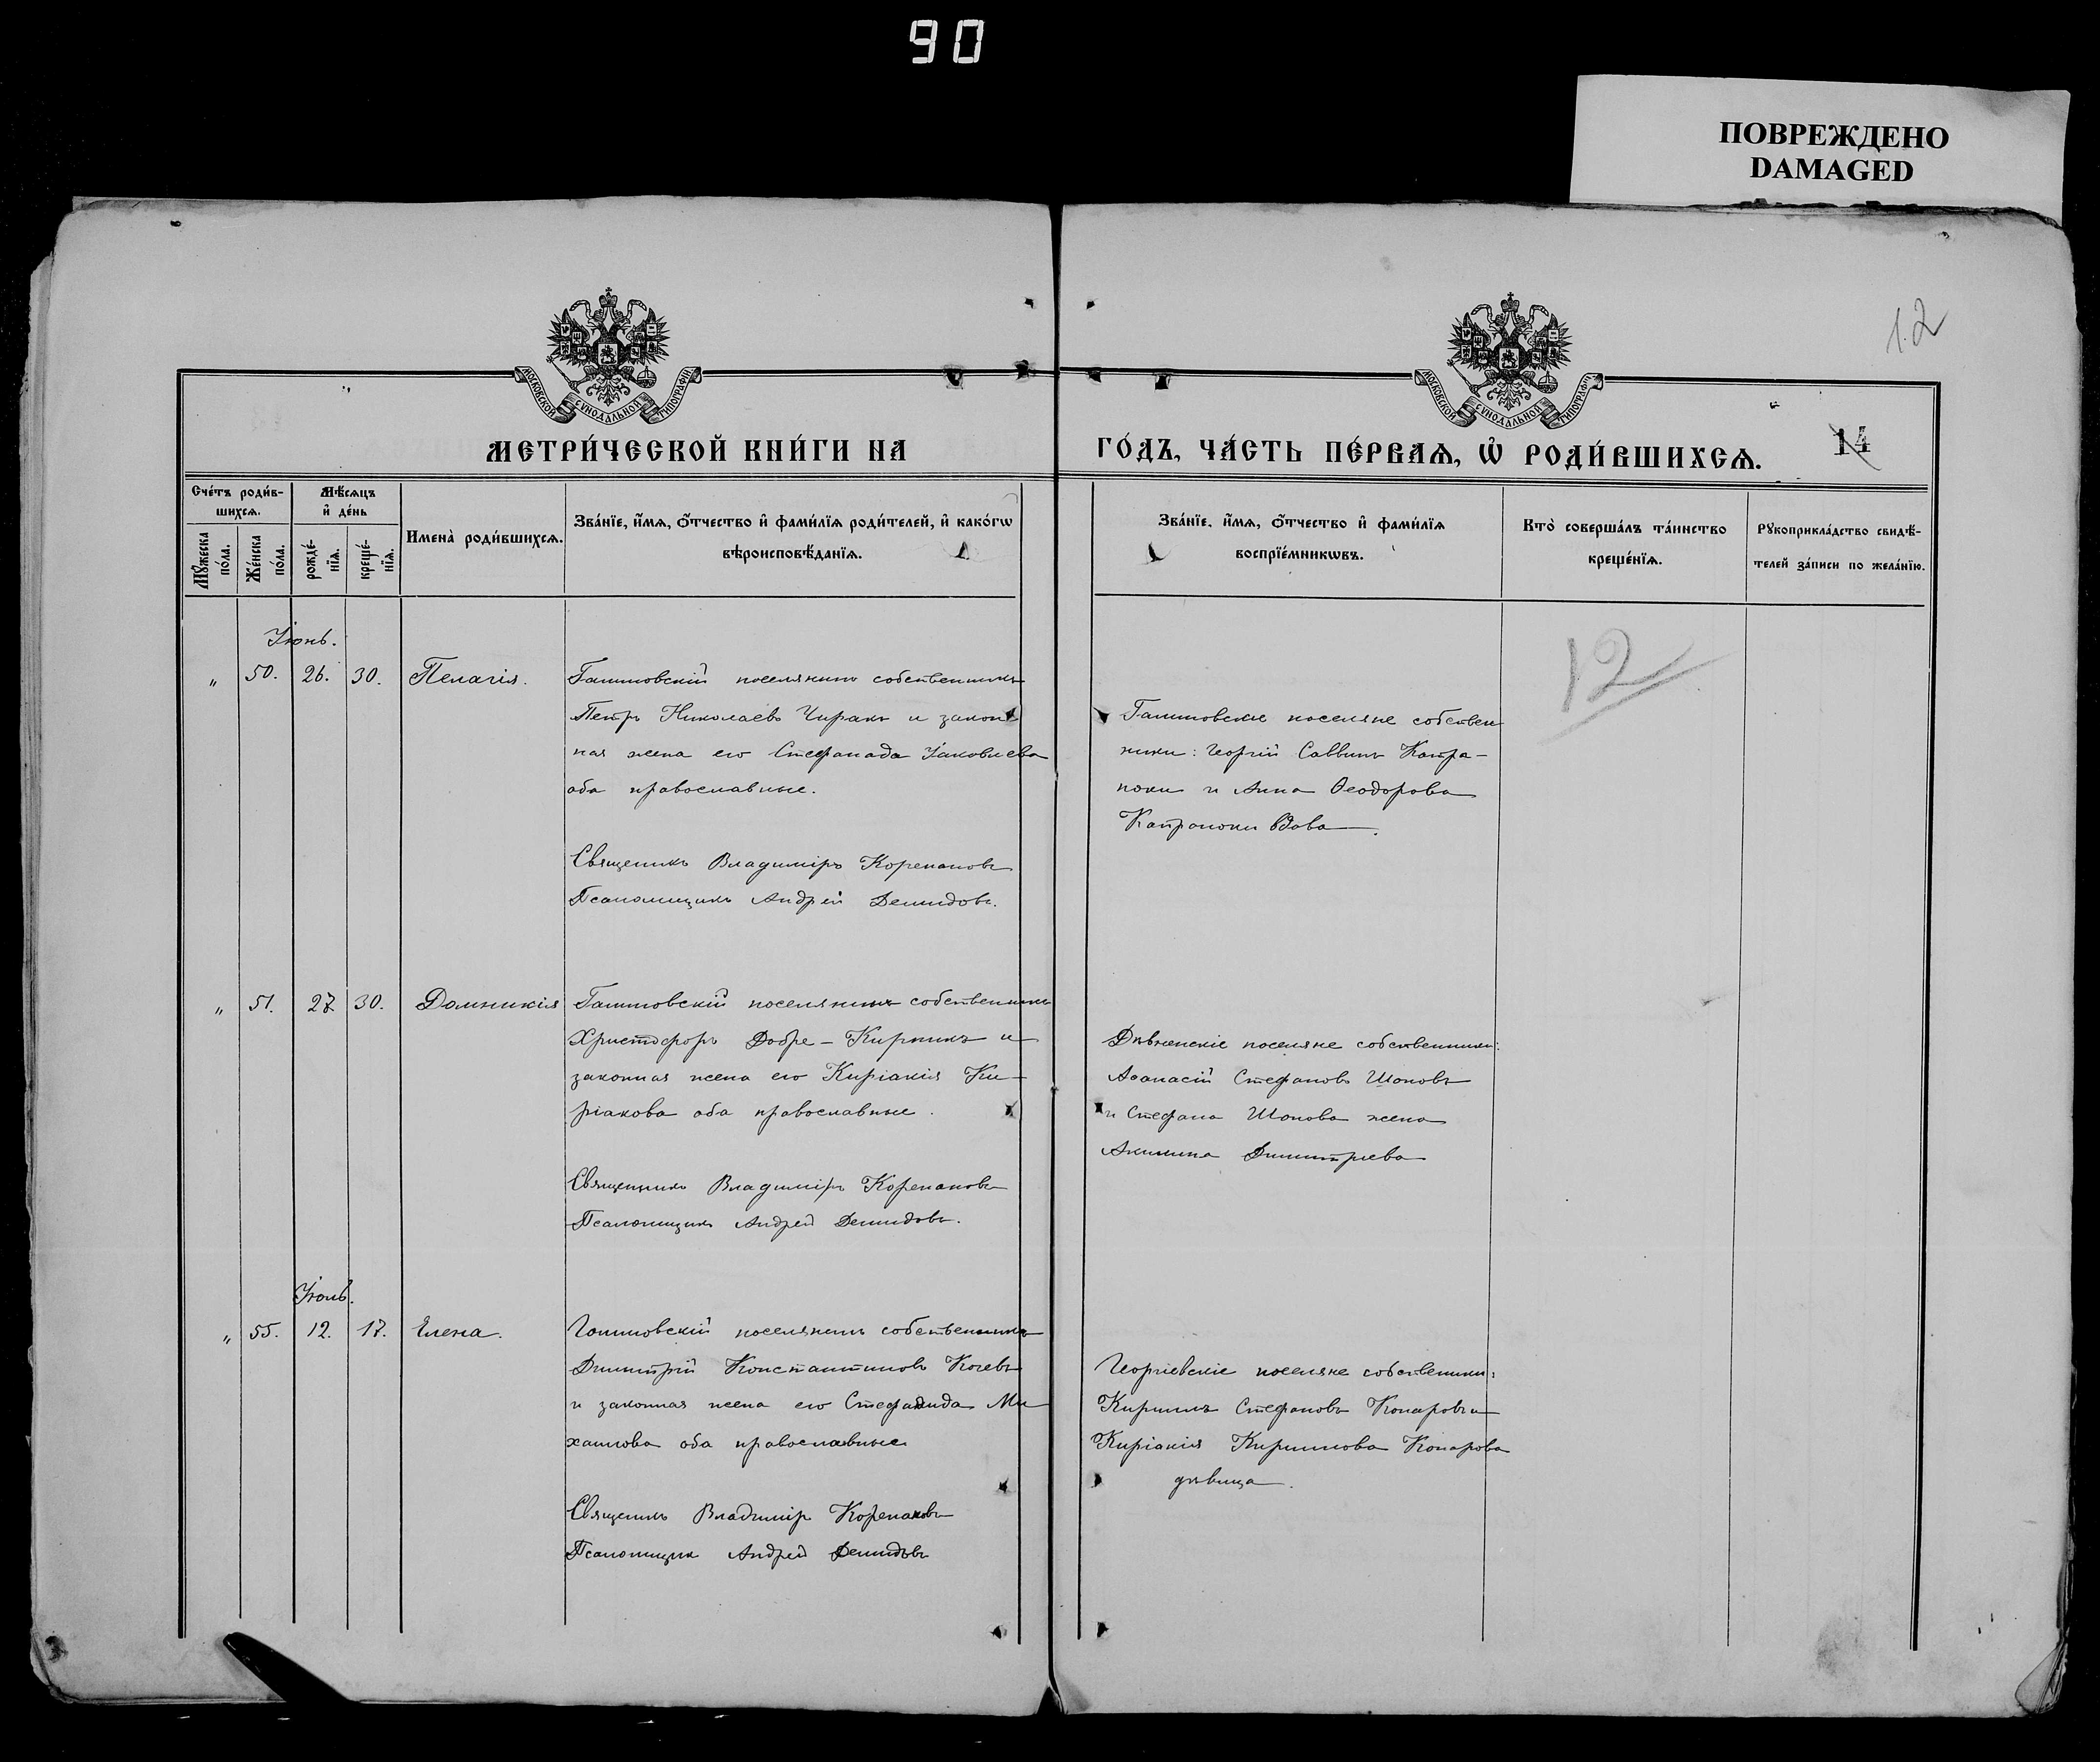 90
ПОВРЕЖДЕНО
DAMAGED
12
МОСКОВСКОЙ СѴНОДАЛЬНОЙ ТИПОГРАФІИ
МОСКОВСКОЙ СѴНОДАЛЬНОЙ ТИПОГРАФІИ
МЕТРИ́ЧЕСКОЙ КНИ́ГИ НА
ГО́ДЪ, ЧА́СТЬ ПЕ́РВАѦ, Ѡ҆ РОДИ́ВШИХСѦ.
14
Сче́тъ роди́в-
шихсѧ.
Мѣ́сѧцъ
и҆ де́нь
Мꙋ́жеска по́ла.
Же́нска по́ла.
рожде́-нїѧ.
креще́-нїѧ.
Имена̀ роди́вшихсѧ.
Зва́нїе, и҆́мѧ, ѻ҆́тчество и҆ фами́лїѧ роди́телей, и҆ како́гѡ
вѣроисповѣ́данїѧ.
Зва́нїе, и҆́мѧ, ѻ҆́тчество и҆ фами́лїѧ
воспрїе́мникѡвъ.
Кто̀ соверша́лъ та́инство
креще́нїѧ.
Рꙋкоприкла́дство свидѣ́-
телей за́писи по жела́нїю.
Іюнь.
„ 50. 26. 30. Пелагія.
поселянинъ собственникъ
Петръ Николаевъ Чиракъ и закон
ная жена его Стефанада Іаковлева
оба православные.
Священикъ Владиміръ Корепановъ
Псаломщикъ Андрей Демидовъ.
поселяне собствен
ники: Георгій Саввинъ Капра-
ноки и Анна Ѳеодорова
Капраноки вдова.
12
„ 51. 27 30. Домникія
поселянинъ собственникъ
Христофоръ Добре-Кирникъ и
законная жена его Киріакія Ки-
ріакова оба православные.
Священникъ Владиміръ Корепановъ
Псаломщикъ Андрей Демидовъ.
поселяне собственники:
Аѳанасій Стефановъ Шоповъ
и Стефана Шопова жена
Димитріева
Іюль.
„ 55. 12. 17. Елена.
поселянинъ собственникъ
Димитрій Константиновъ Кочевъ
и законная жена его Стефанида Ми
хаилова оба православные
Священикъ Владиміръ Корепановъ
Псаломщикъ Андрей Демидовъ
Георгіевскіе поселяне собственики:
Кириллъ Стефановъ Копаровъ и
Киріакія Кириллова Копарова
дѣвица.